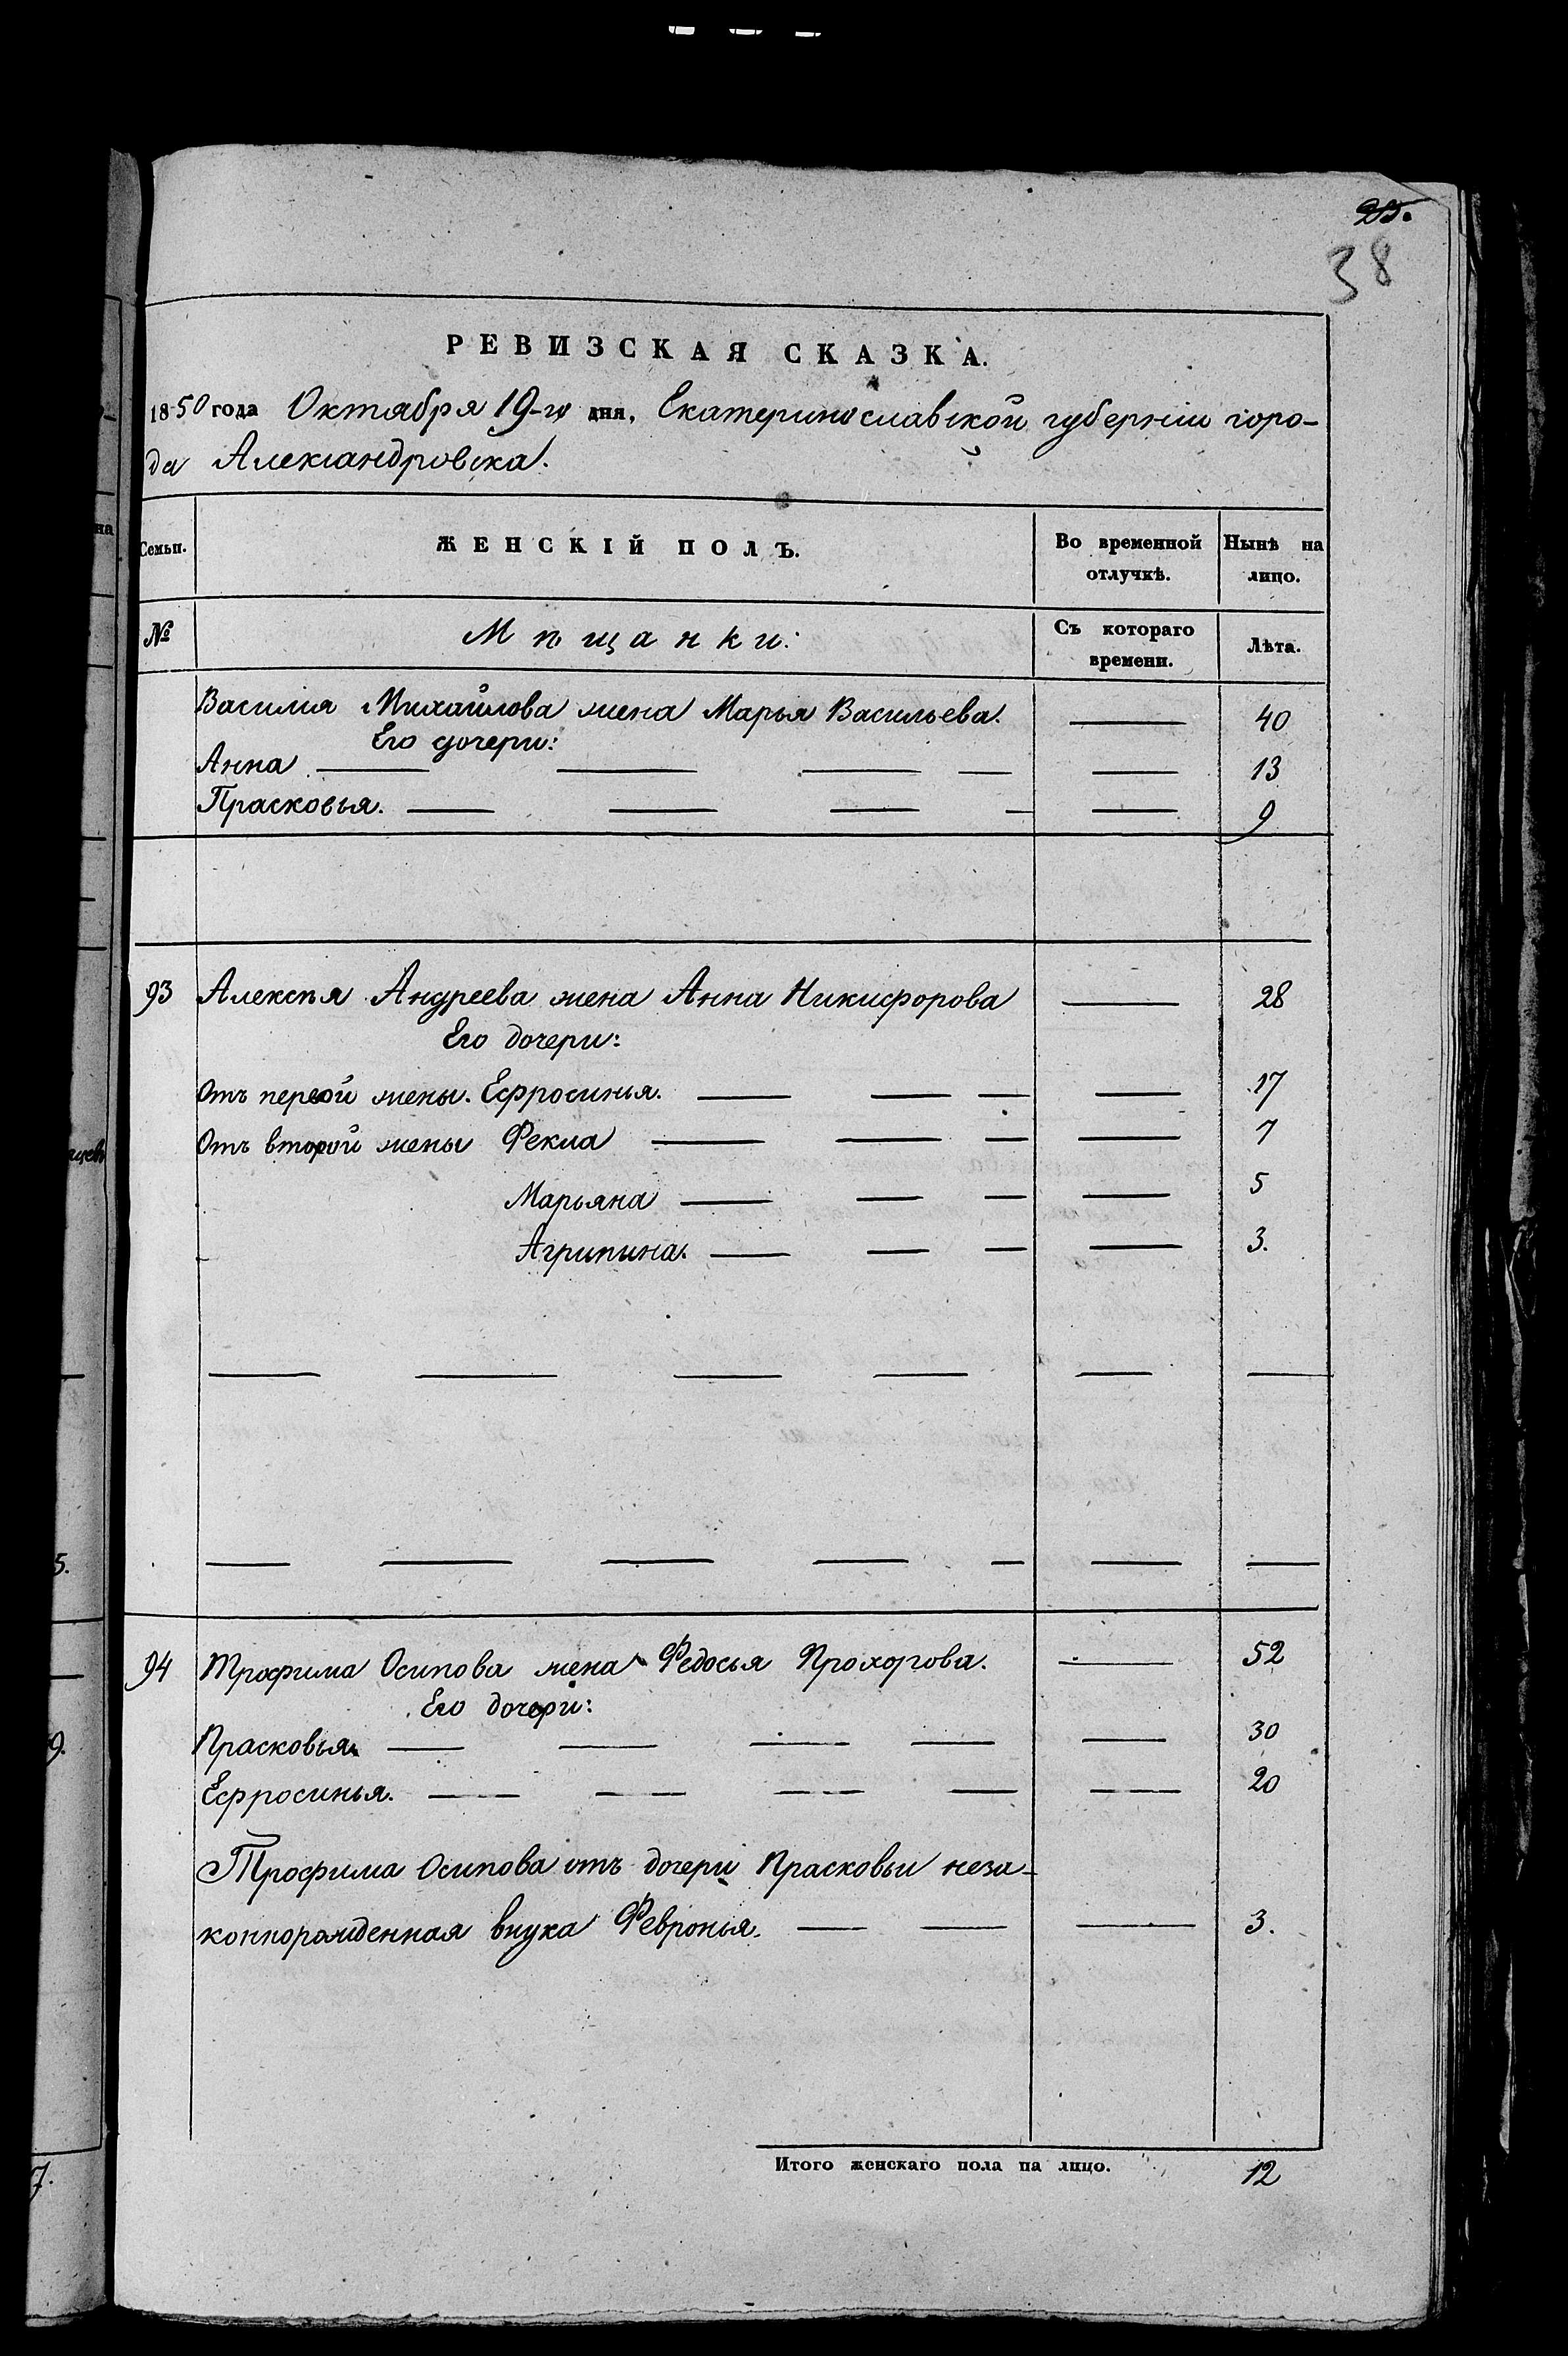 38
РЕВИЗСКАЯ СКАЗКА.
1850 года Октября 19-го дня, Екатеринославской губернiи горо-
да Александровска.
Семьи. ЖЕНСКIЙ ПОЛЪ. Во временной отлучкѣ. Нынѣ на лицо.
№ Мѣщанки: Съ котораго времени. Лѣта.
Василия Михайлова жена Марья Васильева. — 40
Его дочери:
Анна — — — — — 13
Прасковья. — — — — — 9
93 Алексѣя Андреева жена Анна Никифорова — 28
Его дочери:
Отъ первой жены. Ефросинья. — — — — 17
Отъ второй жены Фекла — — — — 7
Марьяна — — — — 5
Агрипина. — — — — 3.
— — — — — —
— — — — — — —
94 Трофима Осипова жена Федосья Прохорова. — 52
Его дочери:
Прасковья. — — — — — 30
Ефросинья. — — — — — 20
Трофима Осипова отъ дочери Прасковьи неза-
коннорожденная внука Февронья. — — — 3.
Итого женскаго пола на лицо. 12